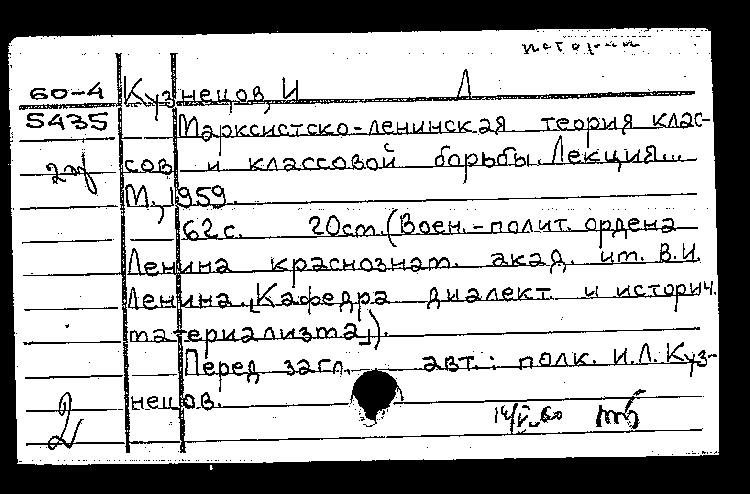 60-4 Кузнецов, И Л
5435 Марксистско-ленинская теория клас-
сов и классовой борьбы. Лекция...
М., 1959.
62 с. 20 см. (Воен.-полит. ордена
Ленина краснознам. акад. им. В.И.
Ленина. [Кафедра диалект. и историч.
материализма]).
Перед загл. авт.: полк. И.Л. Куз-
нецов.
2